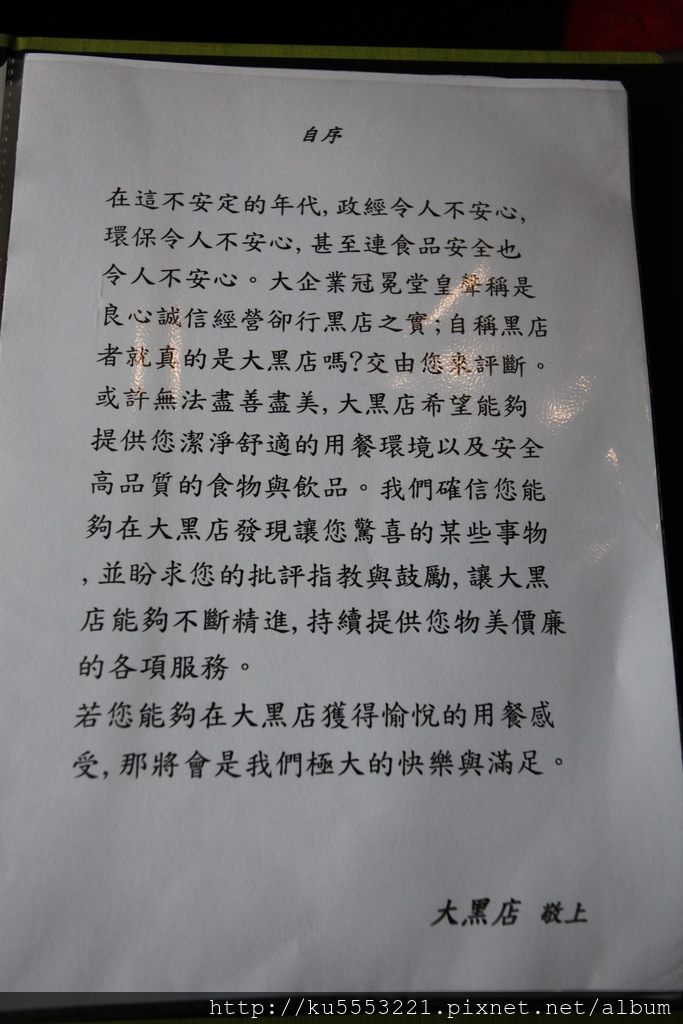 自序
在這不安定的年代,政經令人不安心,
環保令人不安心,甚至連食品安全也
令人不安心。大企業冠冕堂皇聲稱是
良心誠信經營卻行黑店之實;自稱黑店
者就真的是大黑店嗎?交由您來評斷。
或許無法盡善盡美,大黑店希望能夠
提供您潔淨舒適的用餐環境以及安全
高品質的食物與飲品。我們確信您能
夠在大黑店發現讓您驚喜的某些事物
,並盼求您的批評指教與鼓勵,讓大黑
店能夠不斷精進,持續提供您物美價廉
的各項服務。
若您能夠在大黑店獲得愉悅的用餐感
受,那將會是我們極大的快樂與滿足。
大黑店 敬上
http://ku5553221.pixnet.net/album